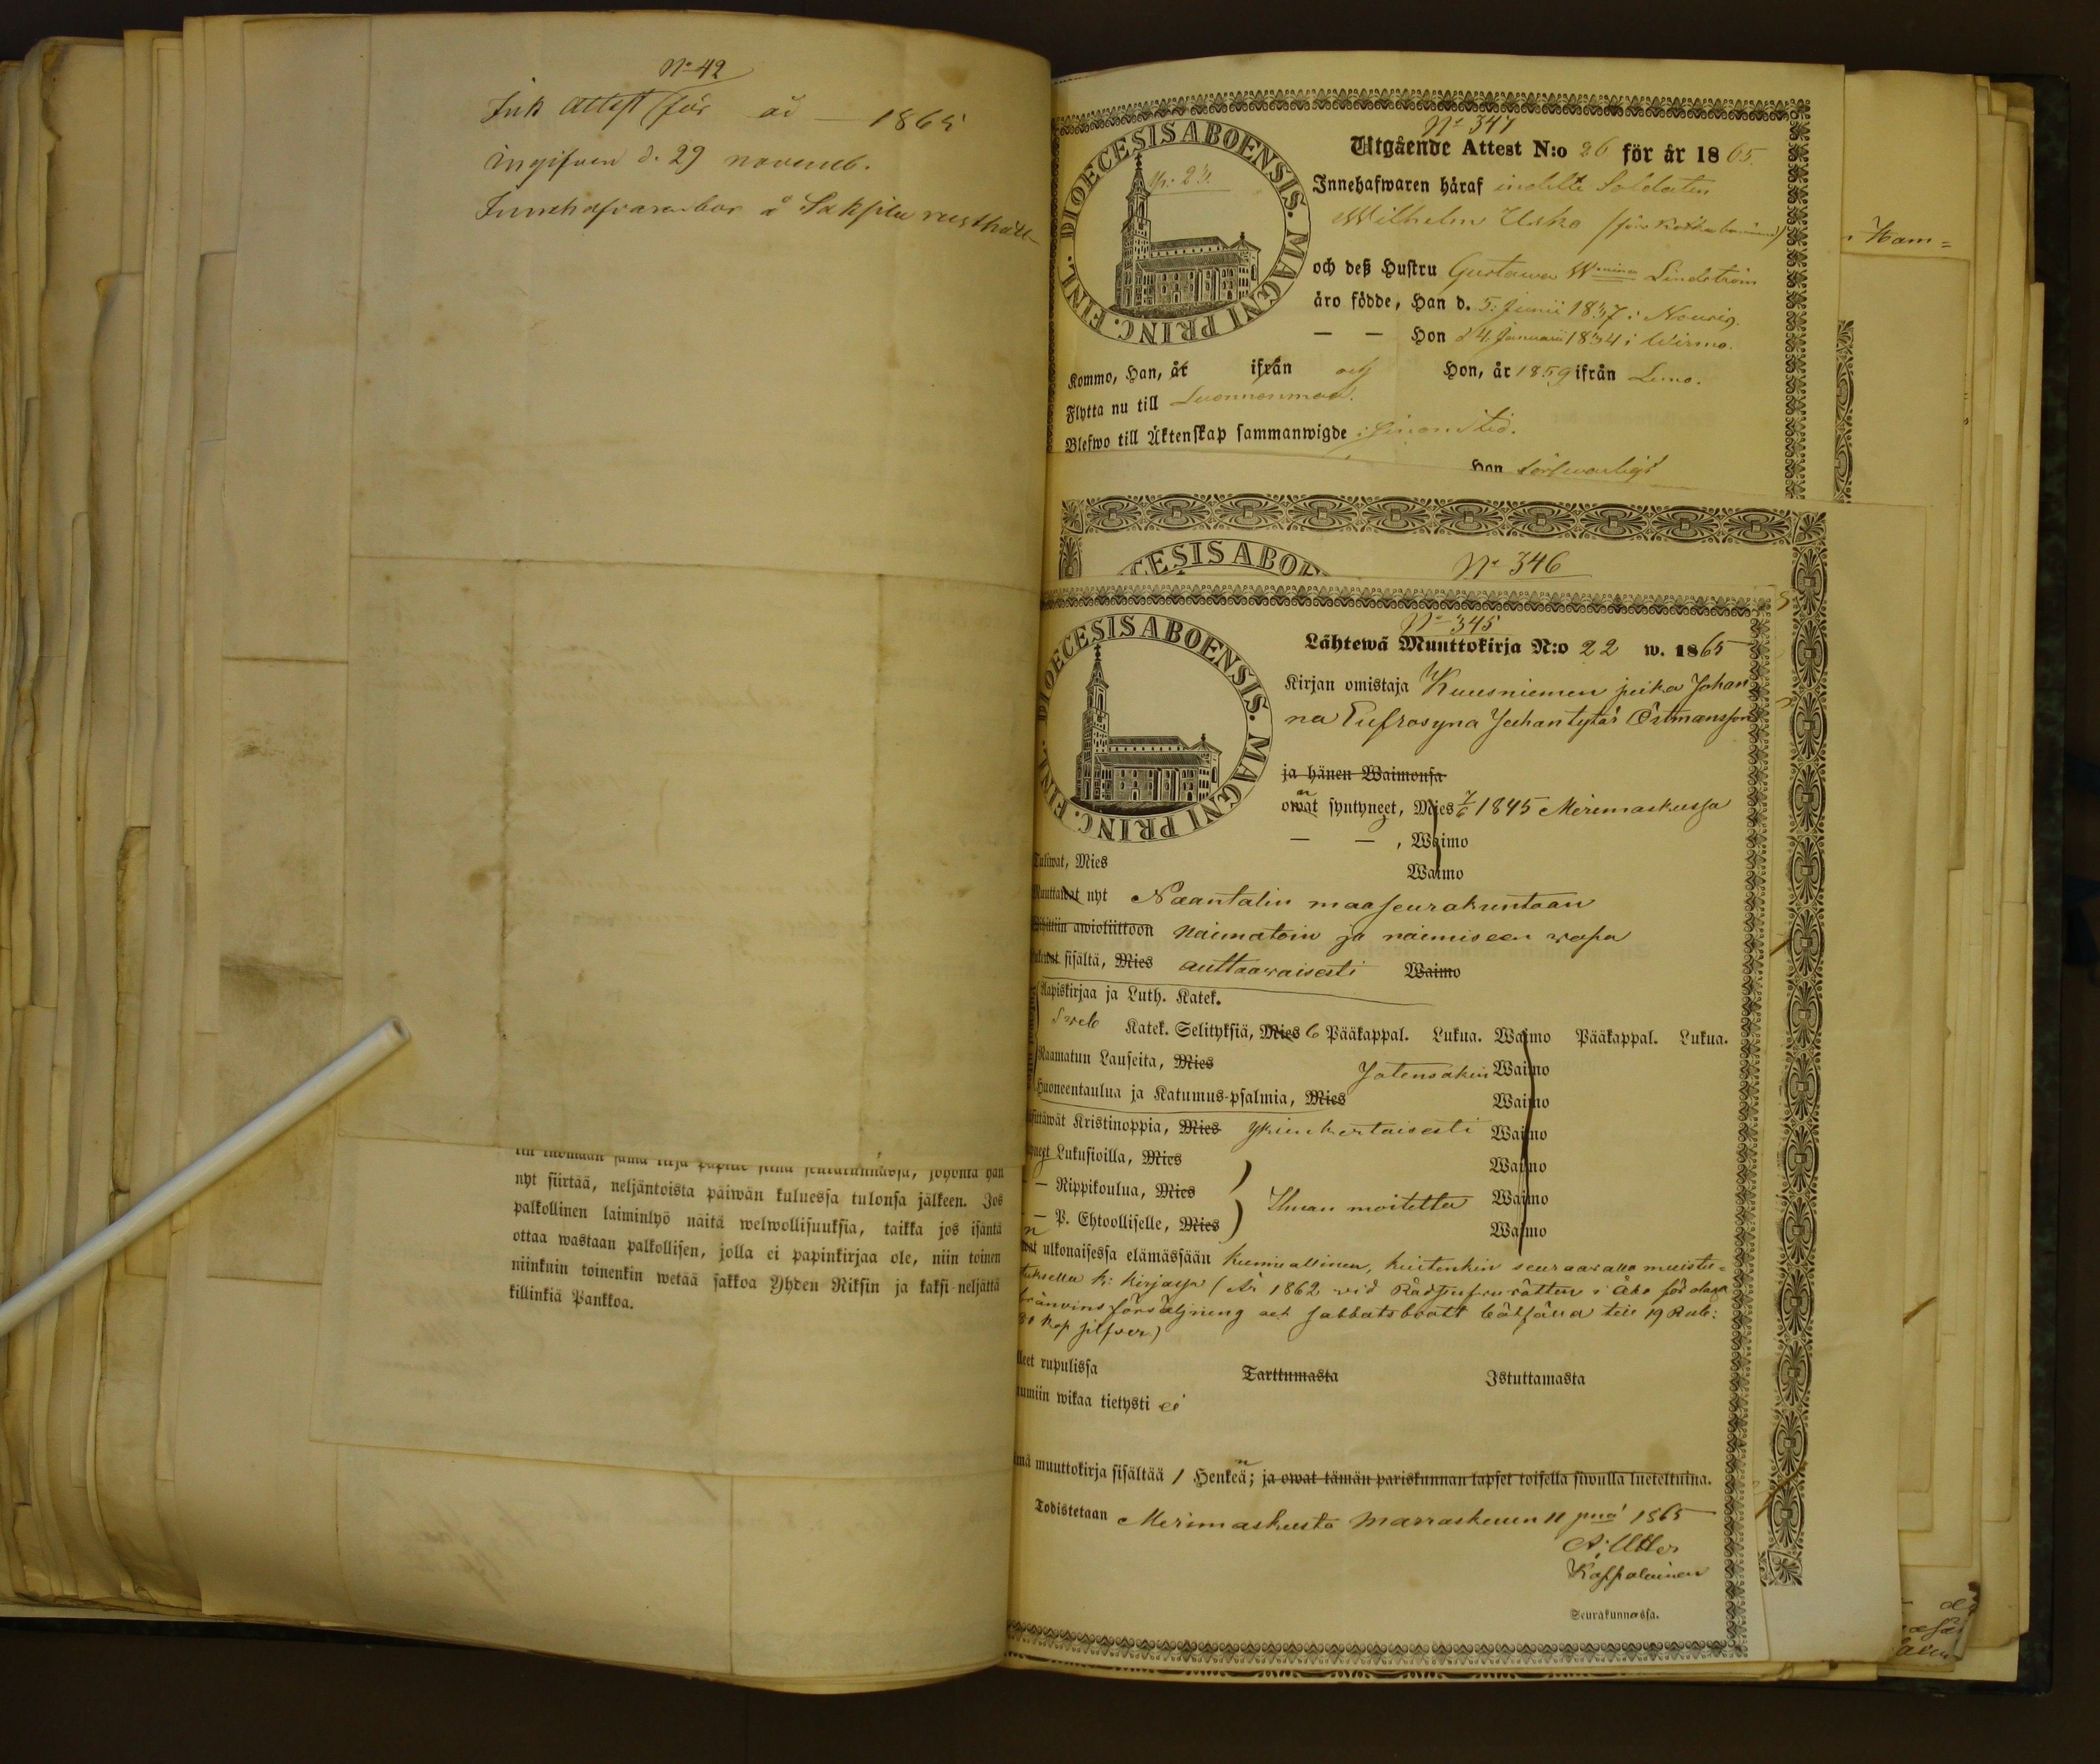 No 42
Ink Attest för år — 1865
ingifven d. 29 novemb.
Innehafvaren bor å Saksila rusthåll
nyt siirtää, neljäntoista päiwän kuluessa tulonsa jälkeen. Jos
palkollinen laiminlyö näitä welwollisuuksia, taikka jos isäntä
ottaa wastaan palkollisen, jolla ei papinkirjaa ole, niin toinen
niinkuin toinenkin wetää sakkoa Yhden Riksin ja kaksi-neljättä
killinkiä Pankkoa.
Ham=
No 347
DIOECESIS ABOENSIS. MAGNI PRINC. FINL.
Utgående Attest N:o 26 för år 1865.
Innehafwaren häraf indelte Soldaten
Wilhelm Usko
och deß Hustru Gustawa Wmina Lindström
äro födde, Han d. 5: Junii 1837 i Nousis.
— — Hon 24 Januarii 1834 i Wirmo.
Kommo, Han, år ifrån Hon, år 1859 ifrån Lemo.
Flytta nu till Luonnonmaa.
Blefwo till Äktenskap sammanwigde i sinom tid.
Hon förswarligt
CESIS ABOE
No 346
No 345
DIOECESIS ABOENSIS. MAGNI PRINC. FINL.
Lähtewä Muuttokirja N:o 22 w. 1865
Kirjan omistaja Kuusniemen piika Johan
na Eufrosyna Juhantytär Östmansson
ja hänen Waimonsa
owat syntyneet, Mies 7/6 1845 Merimaskussa
— — , Waimo
Tuliwat, Mies Waimo
Muuttawat nyt Naantalin maaseurakuntaan
Wihittiin awioliittoon naimatoin ja naimiseen wapa
sisältä, Mies auttawaisesti Waimo
Aapiskirjaa ja Luth. Katek.
Sweb Katek. Selityksiä, Mies 6 Pääkappal. Lukua. Waimo Pääkappal. Lukua.
Raamatun Lauseita, Mies Jotensakin Waimo
Huoneentaulua ja Katumus-psalmia, Mies Waimo
Kristinoppia, Mies yksinkertaisesti Waimo
Lukusioilla, Mies Waimo
— Rippikoulua, Mies Ilman moitetta Waimo
— P. Ehtoolliselle, Mies Waimo
ulkonaisessa elämässään kunniallinen, kuitenkin seuraavalla muistu=
tuksella k: kirjassa (År 1862 vid Rådstufvu rätten i Åbo för olaga
bränvins försäljning och sabbatsbrott bötfälld till 19 Rub:
80 kop silfver)
rupulissa Tarttumasta Istuttamasta
wikaa tietysti ei
muuttokirja sisältää 1 Henkeä; ja owat tämän pariskunnan lapset toisella siwulla lueteltuina.
Todistetaan Merimaskusta Marraskuun 11 pnä 1865
A. Utter
Kappalainen
Seurakunnassa.